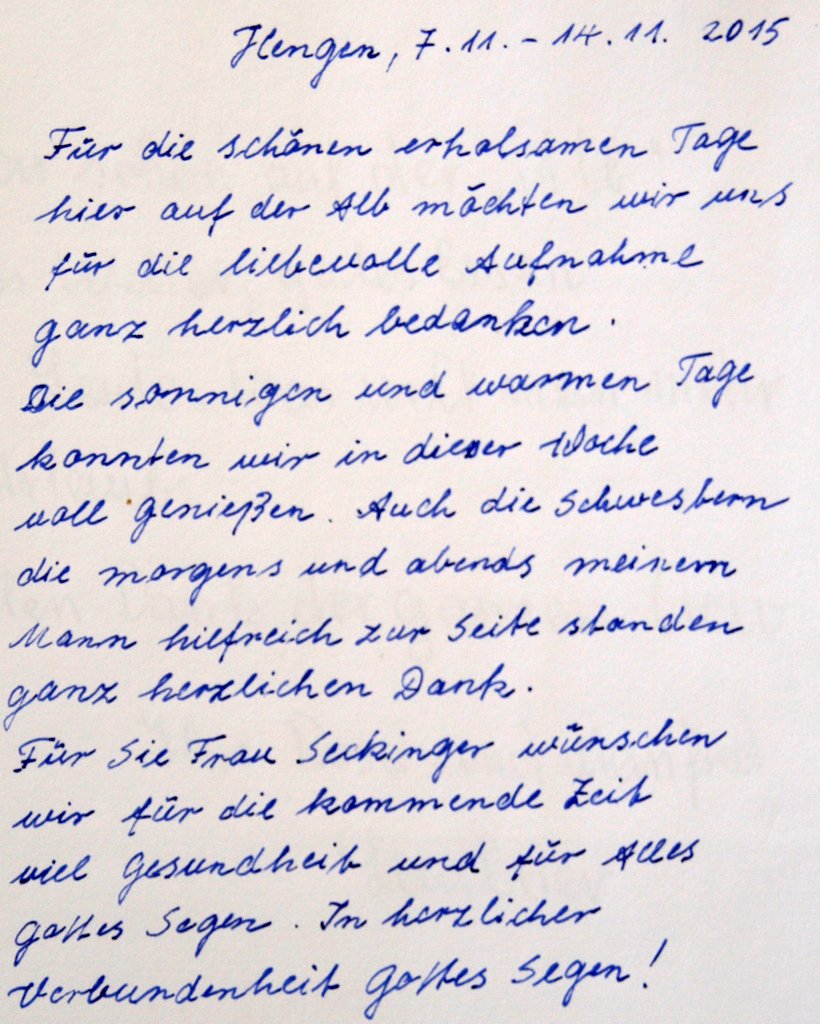 Hengen, 7.11. - 14.11. 2015
Für die schönen erholsamen Tage
hier auf der Alb möchten wir uns
für die liebevolle Aufnahme
ganz herzlich bedanken.
Die sonnigen und warmen Tage
konnten wir in dieser Woche
voll genießen. Auch die Schwestern
die morgens und abends meinem
Mann hilfreich zur Seite standen
ganz herzlichen Dank.
Für Sie Frau Seckinger wünschen
wir für die kommende Zeit
viel Gesundheit und für Alles
Gottes Segen. In herzlicher
Verbundenheit Gottes Segen!